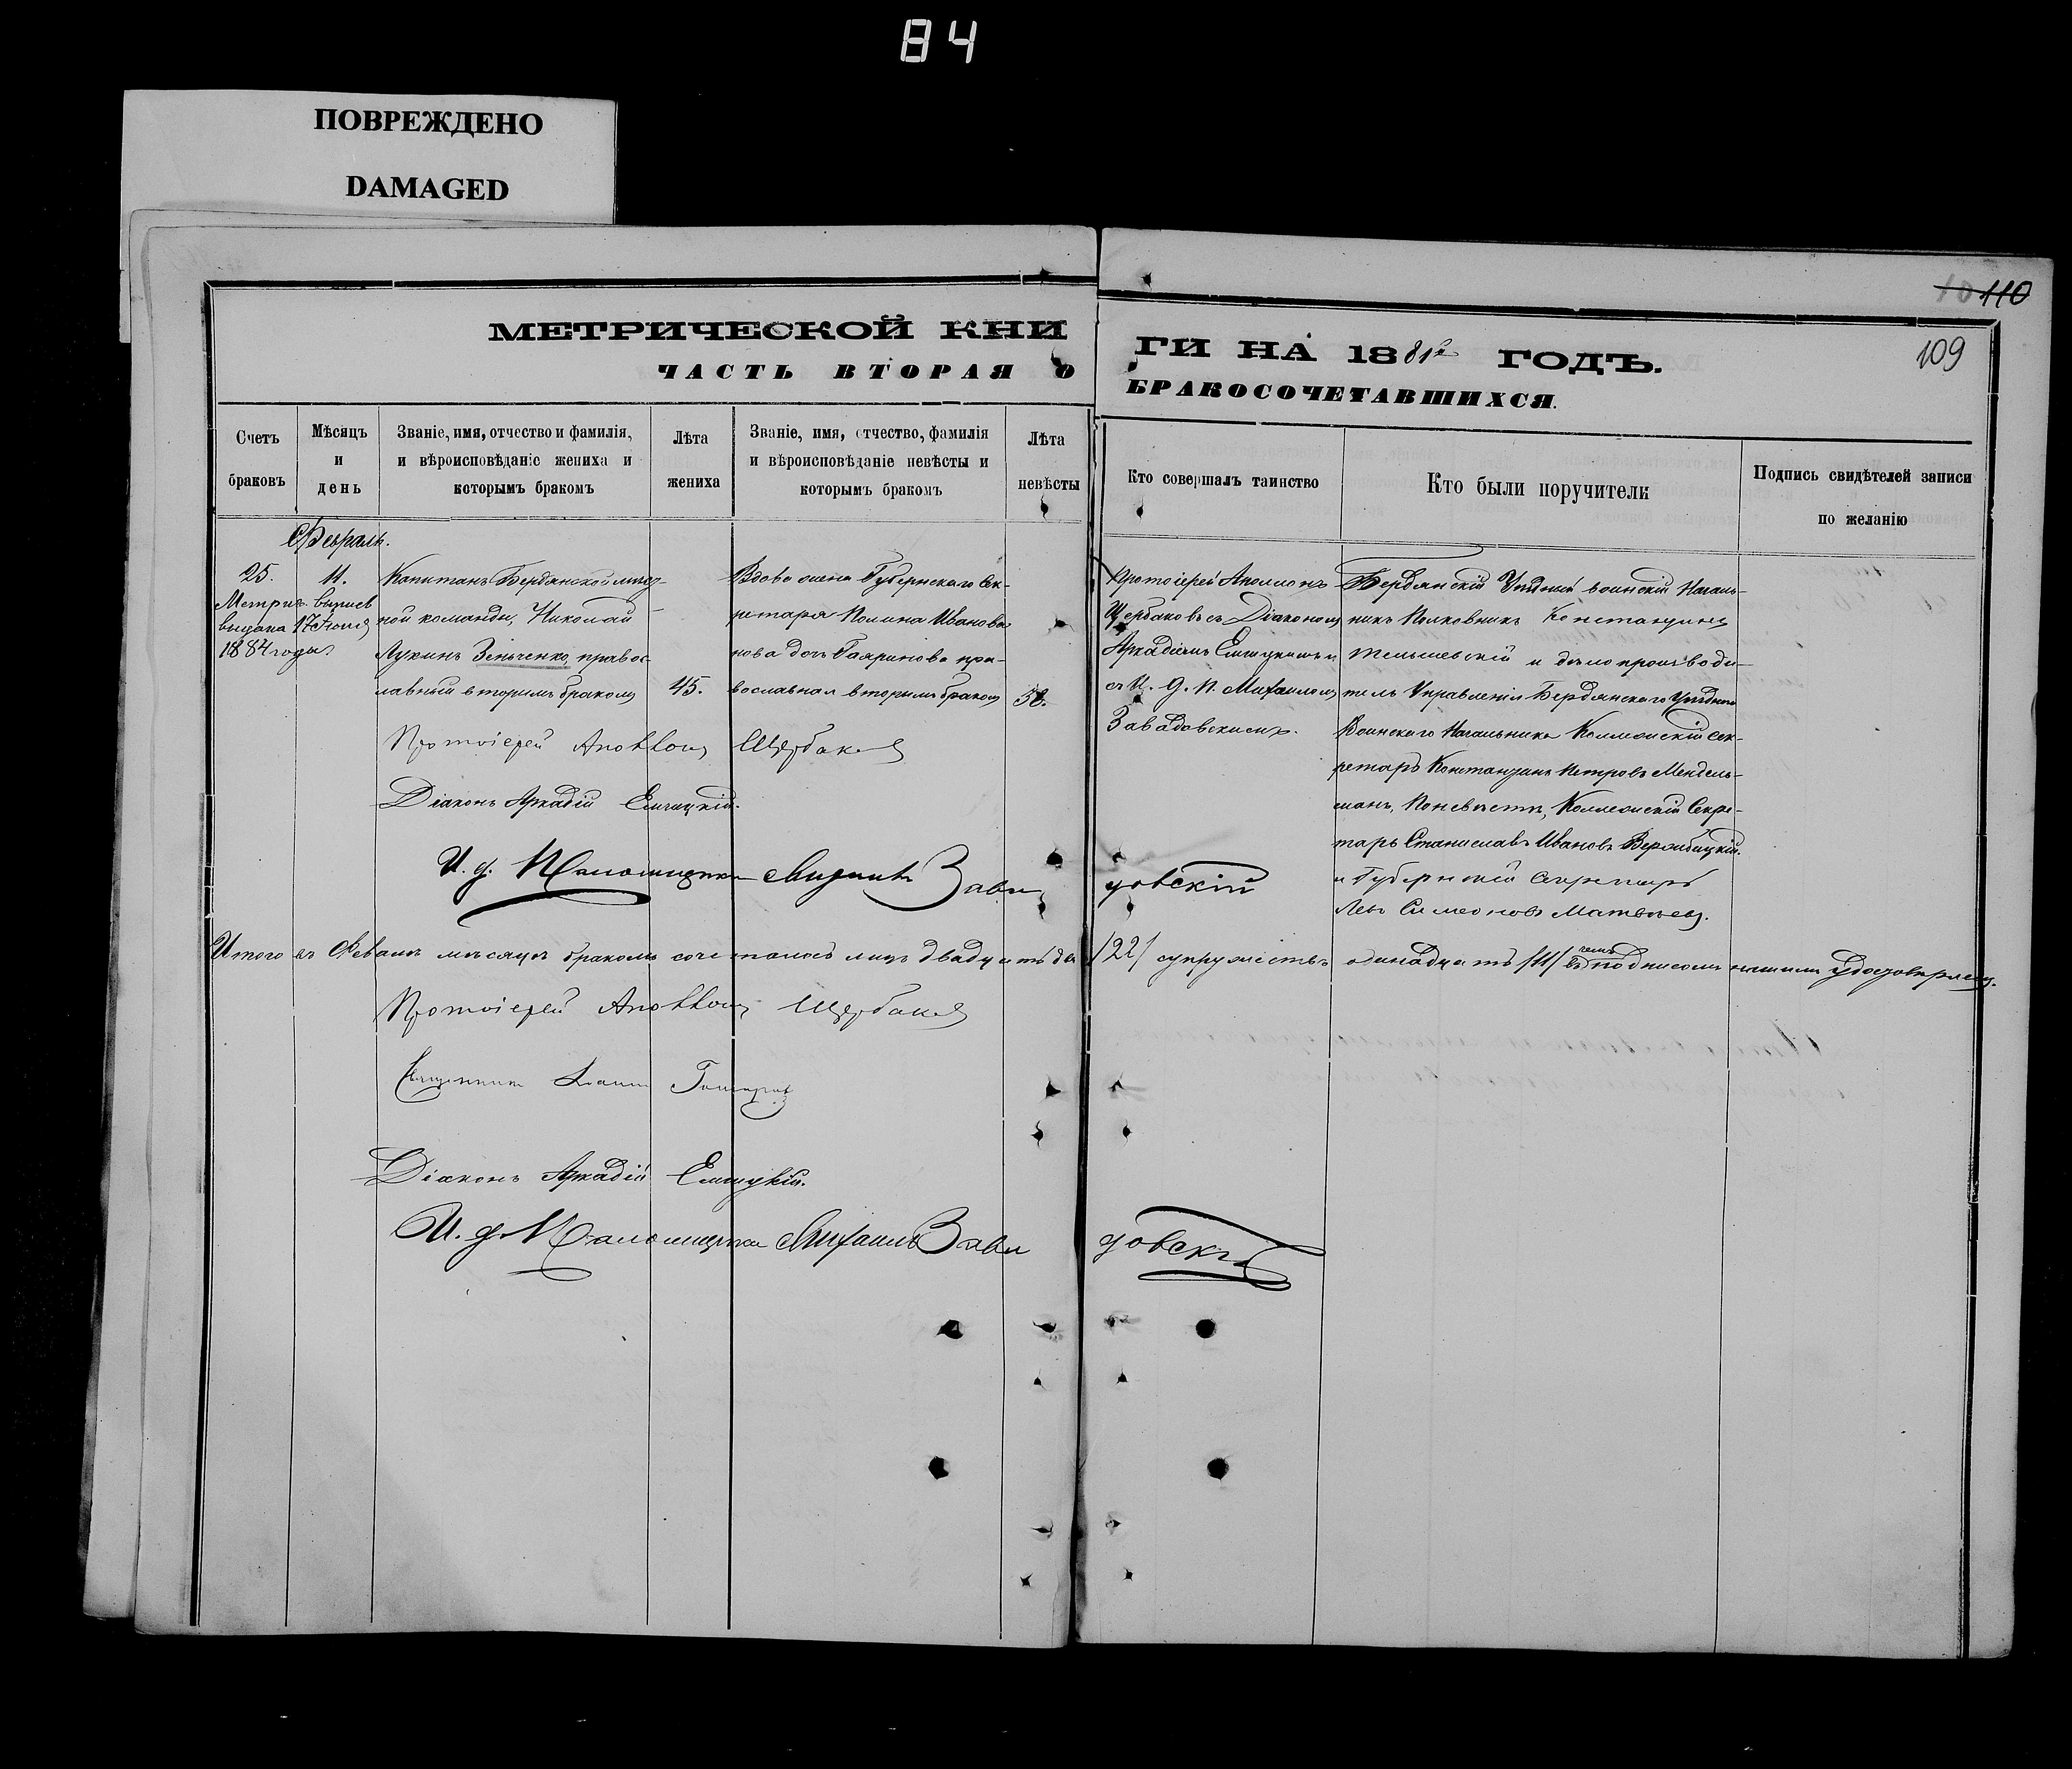 84
ПОВРЕЖДЕНО
DAMAGED
110
109
МЕТРИЧЕСКОЙ КНИ ГИ НА 1881й ГОДЪ.
ЧАСТЬ ВТОРАЯ О БРАКОСОЧЕТАВШИХСЯ.
Счетъ браковъ
Мѣсяцъ и день
Званіе, имя, отчество и фамилія, и вѣроисповѣданіе жениха и которымъ бракомъ
Лѣта жениха
Званіе, имя, отчество, фамилія и вѣроисповѣданіе невѣсты и которымъ бракомъ
Лѣта невѣсты
Кто совершалъ таинство
Кто были поручители
Подпись свидѣтелей записи по желанію
Февраль.
25.
Метрич. выпись
выдана 17 Іюня
1884 года.
11.
Капитанъ Бердянской
ной команды, Николай
Лукинъ Зеньченко, правос-
лавный вторымъ бракомъ
45.
Вдова жена Губернскаго Сек-
ретаря Полина Иванова
нова дочь пра-
вославная вторымъ бракомъ
38.
Протоіерей Аполлонъ
Щербаковъ съ Діакономъ
Аркадіемъ Емецкимъ и
съ И. Д. П. Михаиломъ
Завадовскимъ.
Бердянскій Уѣздный воинскій Началь-
никъ Полковникъ Константинъ
и дѣлопроизводи-
тель Управленія Бердянскаго Уѣзднаго
Воинскаго Начальника Коллежскій Сек-
ретарь Константинъ Петровъ Мендель-
манъ, По невѣстѣ, Коллежскій Секре-
тарь Станиславъ Ивановъ Вержбицкій.
и Губернскій Секретарь
Левъ Симеоновъ Матвѣевъ.
Протоіерей Аполлонъ Щербаковъ
Діаконъ Аркадій Емецкій.
И. д. Псаломщика Михаилъ Завадовскій
Итого въ Февралѣ мѣсяцѣ бракомъ сочеталось лицъ двадцать два /22/ супружествъ одинадцать /11/ въ чемъ подписомъ нашимъ удостовѣряемъ.
Протоіерей Аполлонъ Щербаковъ
Священникъ Іоаннъ
Діаконъ Аркадій Емецкій.
И. д. Псаломщика Михаилъ Завадовскій